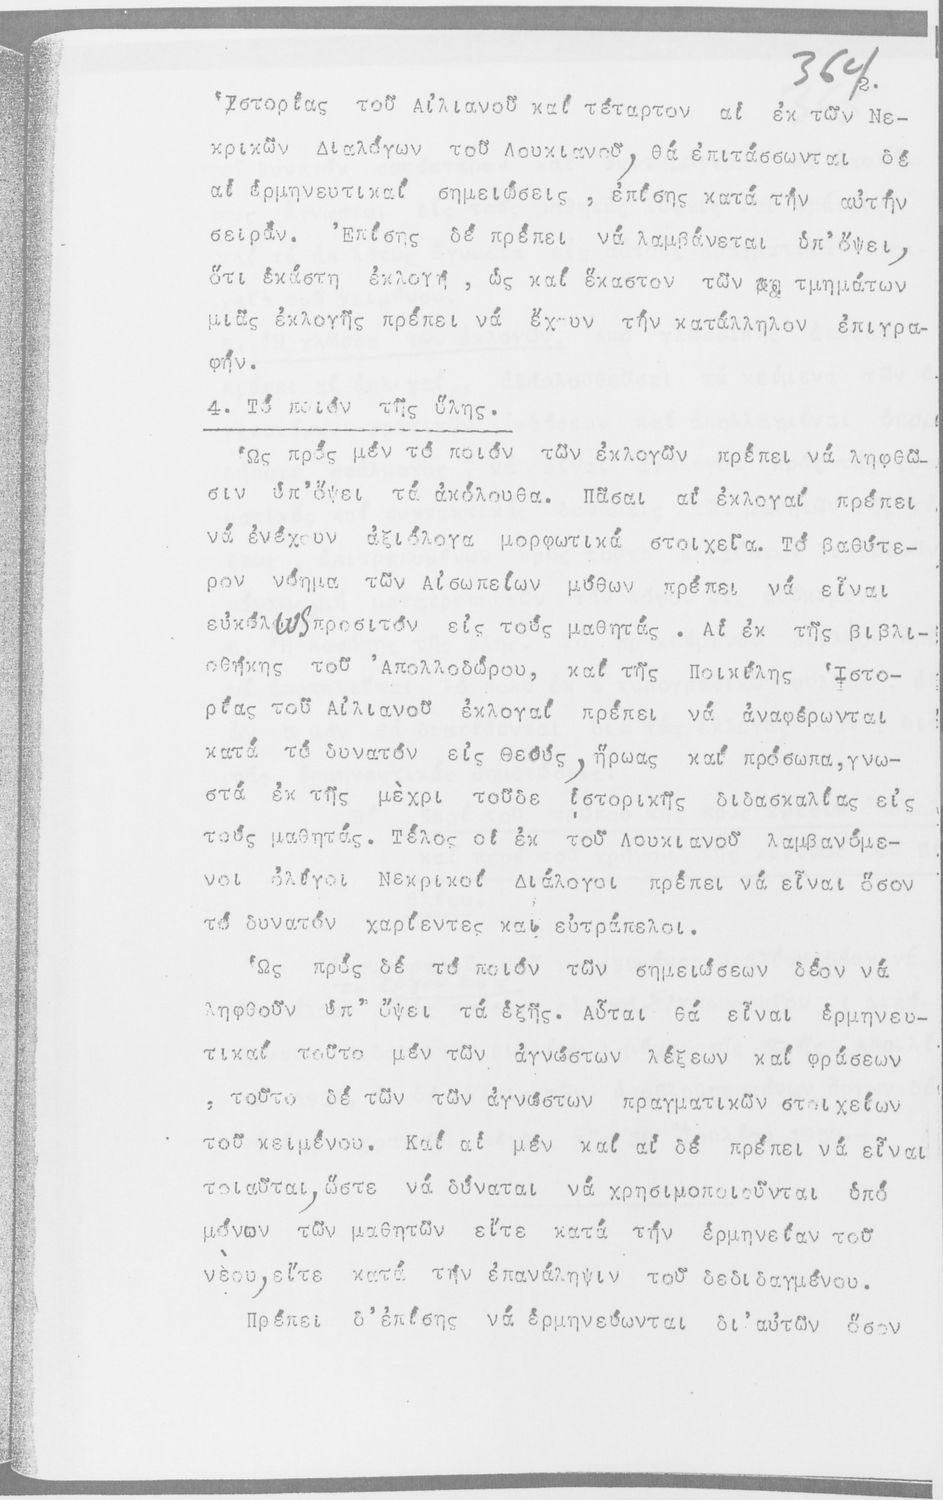 364/2.
Ἱστορίας τοῦ Αἰλιανοῦ καί τέταρτον αἱ ἐκ τῶν Νε-
κρικῶν Διαλόγων τοῦ Λουκιανοῦ, θά ἐπιτάσσωνται δέ
αἱ ἑρμηνευτικαί σημειώσεις , ἐπίσης κατά τήν αὐτήν
σειράν. Ἐπίσης δέ πρέπει νά λαμβάνεται ὑπ'ὄψει,
ὅτι ἑκάστη ἐκλογή , ὡς καί ἕκαστον τῶν τμημάτων
μιᾶς ἐκλογῆς πρέπει νά ἔχουν τήν κατάλληλον ἐπιγρα-
φήν.
4. Τό ποιόν τῆς ὕλης.
Ὡς πρός μέν τό ποιόν τῶν ἐκλογῶν πρέπει νά ληφθῶ-
σιν ὑπ'ὄψει τά ἀκόλουθα. Πᾶσαι αἱ ἐκλογαί πρέπει
νά ἐνέχουν ἀξιόλογα μορφωτικά στοιχεῖα. Τό βαθύτε-
ρον νόημα τῶν Αἰσωπείων μύθων πρέπει νά εἶναι
εὐκόλως προσιτόν εἰς τούς μαθητάς . Αἱ ἐκ τῆς βιβλι-
οθήκης τοῦ Ἀπολλοδώρου, καί τῆς Ποικίλης Ἱστο-
ρίας τοῦ Αἰλιανοῦ ἐκλογαί πρέπει νά ἀναφέρωνται
κατά τό δυνατόν εἰς θεούς, ἥρωας καί πρόσωπα,γνω-
στά ἐκ τῆς μὲχρι τοῦδε ἱστορικῆς διδασκαλίας εἰς
τούς μαθητάς. Τέλος οἱ ἐκ τοῦ Λουκιανοῦ λαμβανόμε-
νοι ὀλίγοι Νεκρικοί Διάλογοι πρέπει νά εἶναι ὅσον
τό δυνατόν χαρίεντες και εὐτράπελοι.
Ὡς πρός δέ τό ποιόν τῶν σημειώσεων δέον νά
ληφθοῦν ὑπ' ὄψει τά ἑξῆς. Αὗται θά εἶναι ἑρμηνευ-
τικαί τοῦτο μέν τῶν ἀγνώστων λέξεων καί φράσεων
, τοῦτο δέ τῶν τῶν ἀγνώστων πραγματικῶν στοιχείων
τοῦ κειμένου. Καί αἱ μέν καί αἱ δέ πρέπει νά εἶναι
τοιαῦται, ὥστε νά δύναται νά χρησιμοποιοῦνται ὑπό
μόνων τῶν μαθητῶν εἴτε κατά τήν ἑρμηνείαν τοῦ
νὲου, εἴτε κατά τήν ἐπανάληψιν τοῦ δεδιδαγμένου.
Πρέπει δ'ἐπίσης νά ἑρμηνεύωνται δι'αὐτῶν ὅσον